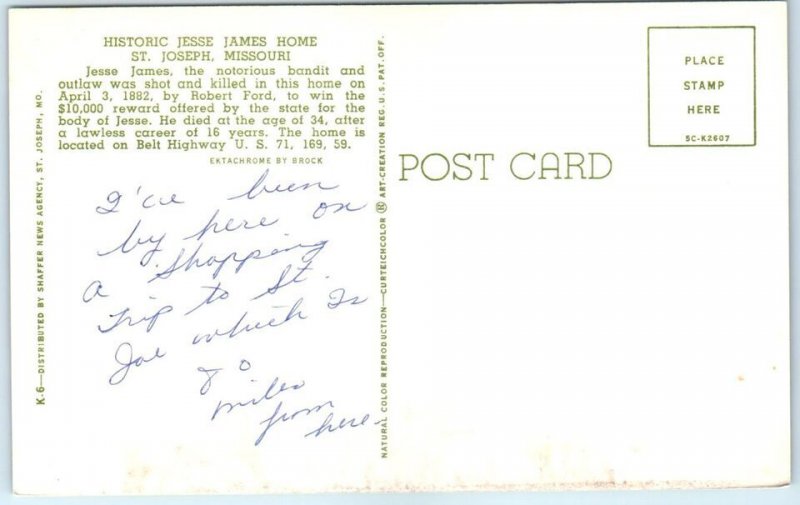 HISTORIC JESSE JAMES HOME
ST. JOSEPH, MISSOURI
Jesse James, the notorious bandit and
outlaw was shot and killed in this home on
April 3, 1882, by Robert Ford, to win the
$10,000 reward offered by the state for the
body of Jesse. He died at the age of 34, after
a lawless career of 16 years. The home is
located on Belt Highway U. S. 71, 169, 59.
EKTACHROME BY BROCK
I've been
by here on
a Shopping
Trip to St.
Joe which Is
miles
from
here
K-6—DISTRIBUTED BY SHAFFER NEWS AGENCY, ST. JOSEPH, MO.
NATURAL COLOR REPRODUCTION—CURTEICHCOLOR ® ART-CREATION REG. U.S. PAT. OFF.
POST CARD
PLACE
STAMP
HERE
5C-K2607